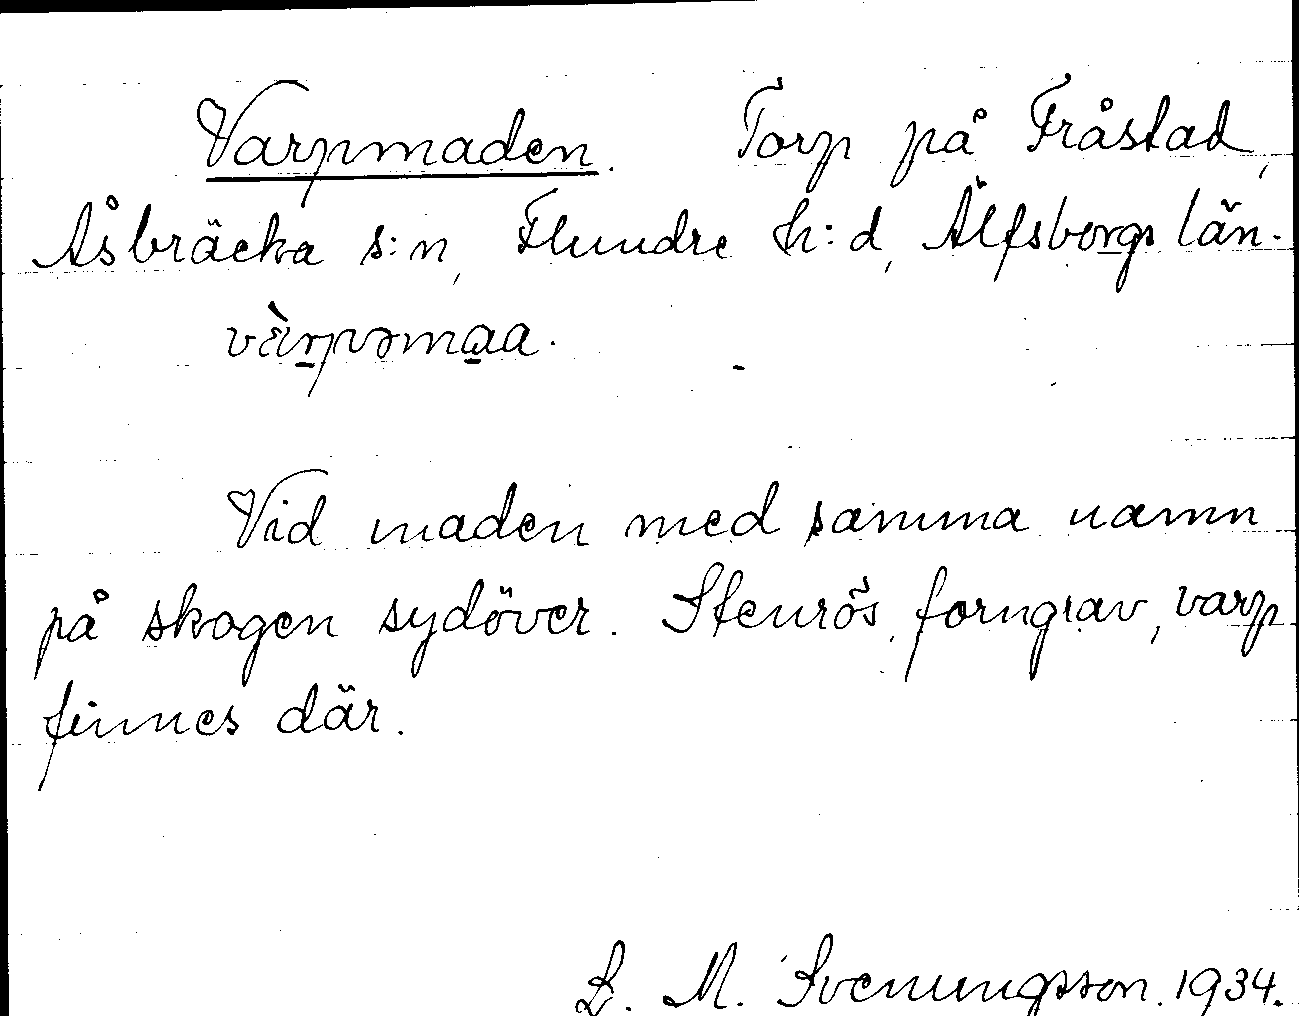 Varpmaden. Torp på Fråstad,
Åsbräcka s:n, Flundre h:d, Älfsborgs län.
Vid maden med samma namn
på skogen sydöver. Stenrös, forngrav, varp
finnes där.
L. M. Svenungsson. 1934.